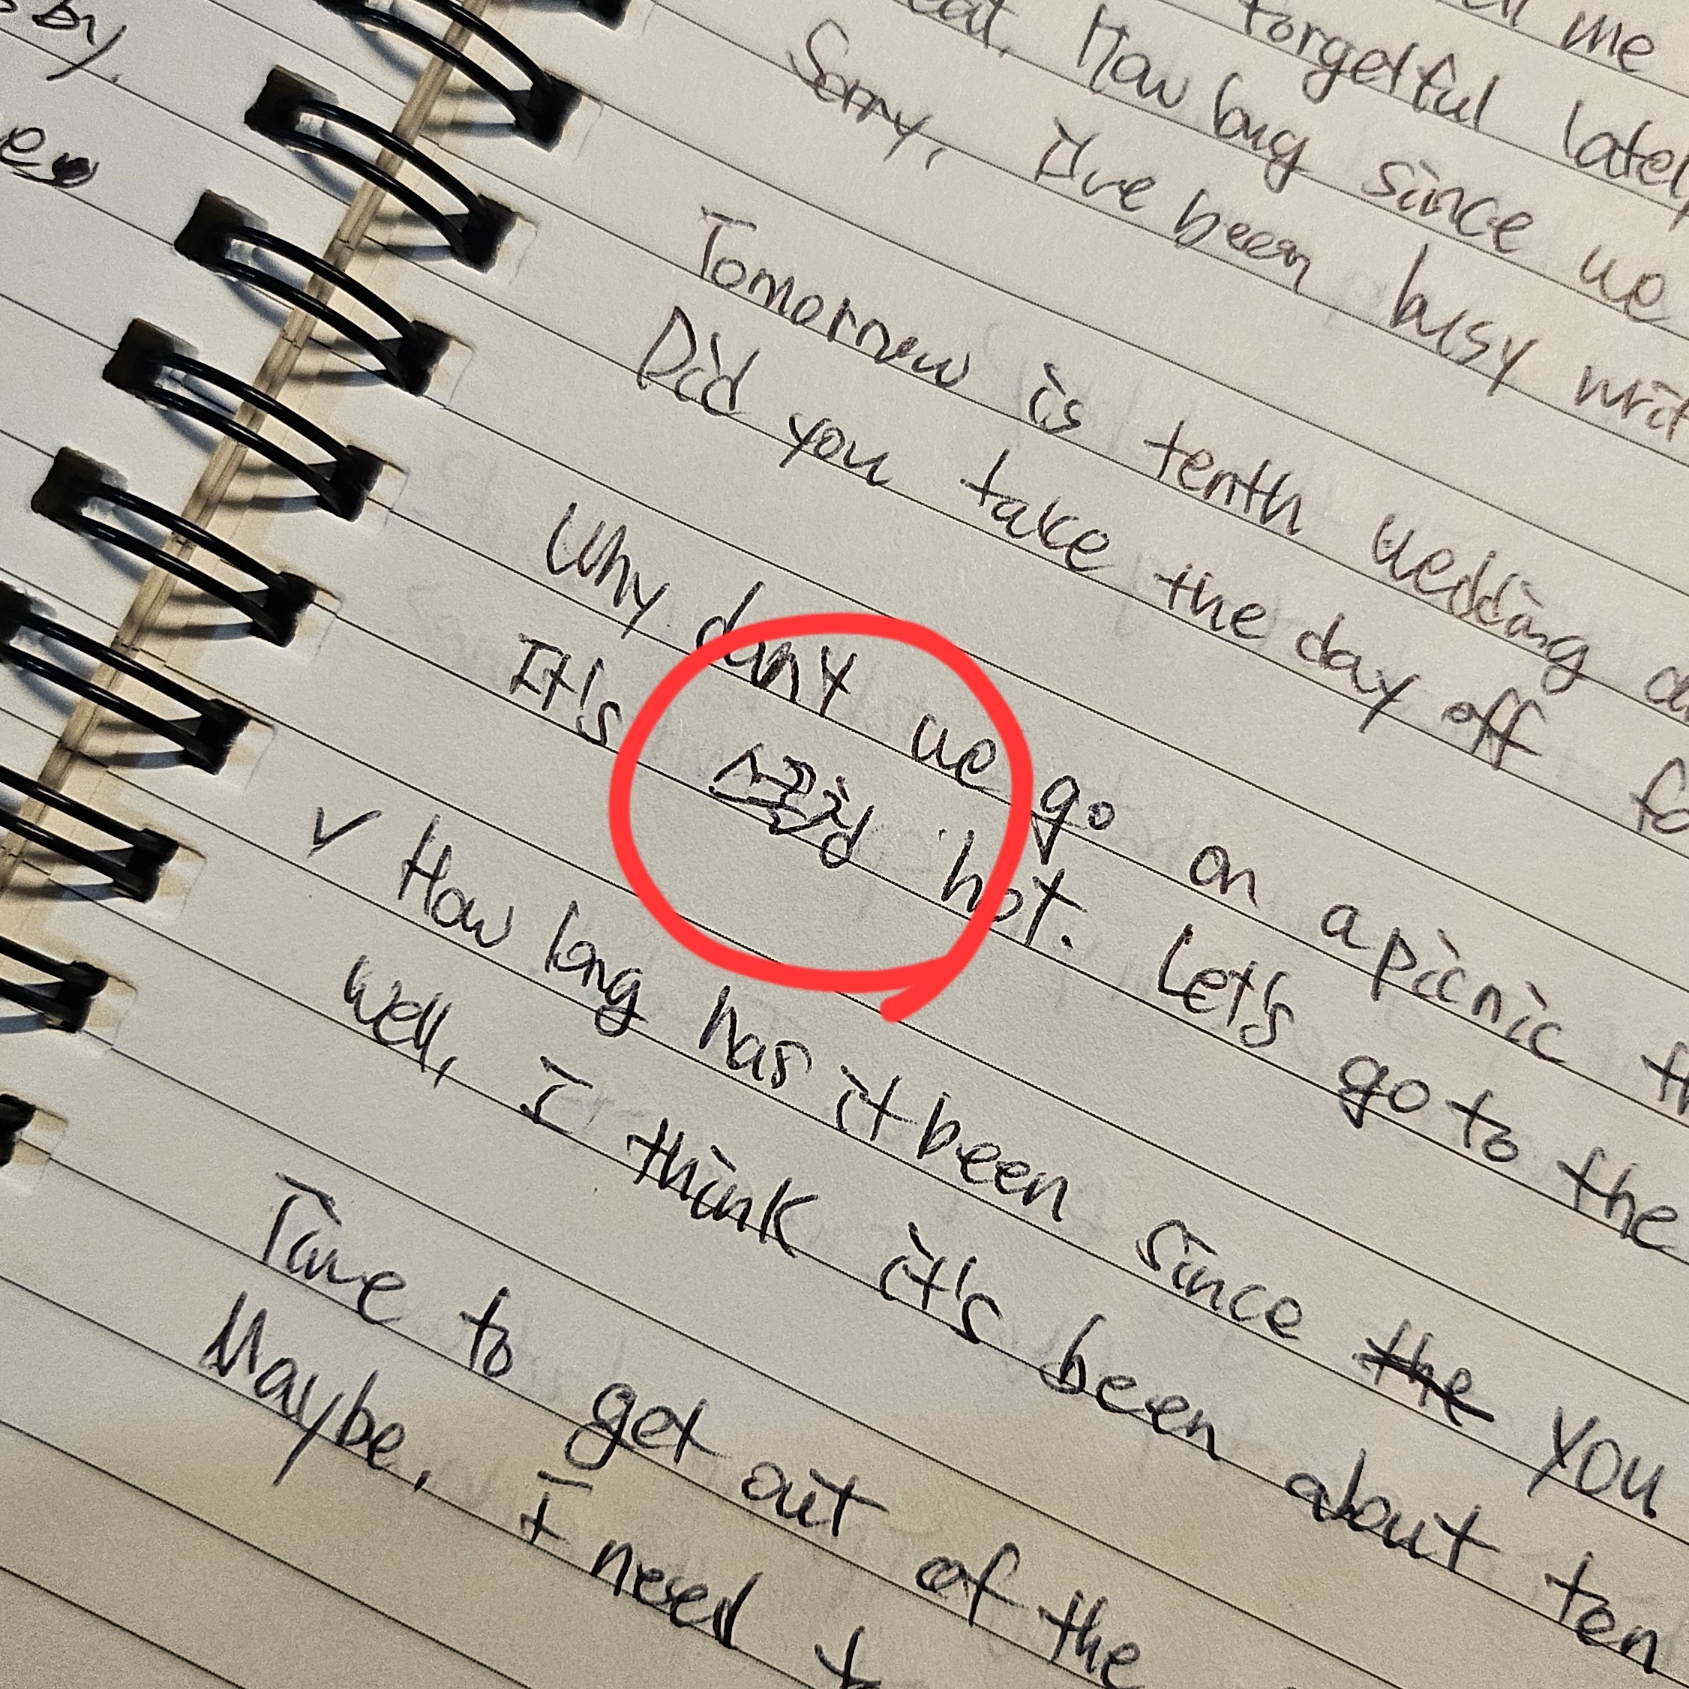 by.
me
forgetful
How long since we
Sorry, I've been busy
Tomorrow is tenth wedding
Did you take the day off
Why don't we go on a picnic
It's 스콜지d hot. Let's go to the
✓ How long has it been since the you
Well, I think it's been about ten
Time to get out of the
Maybe, I need